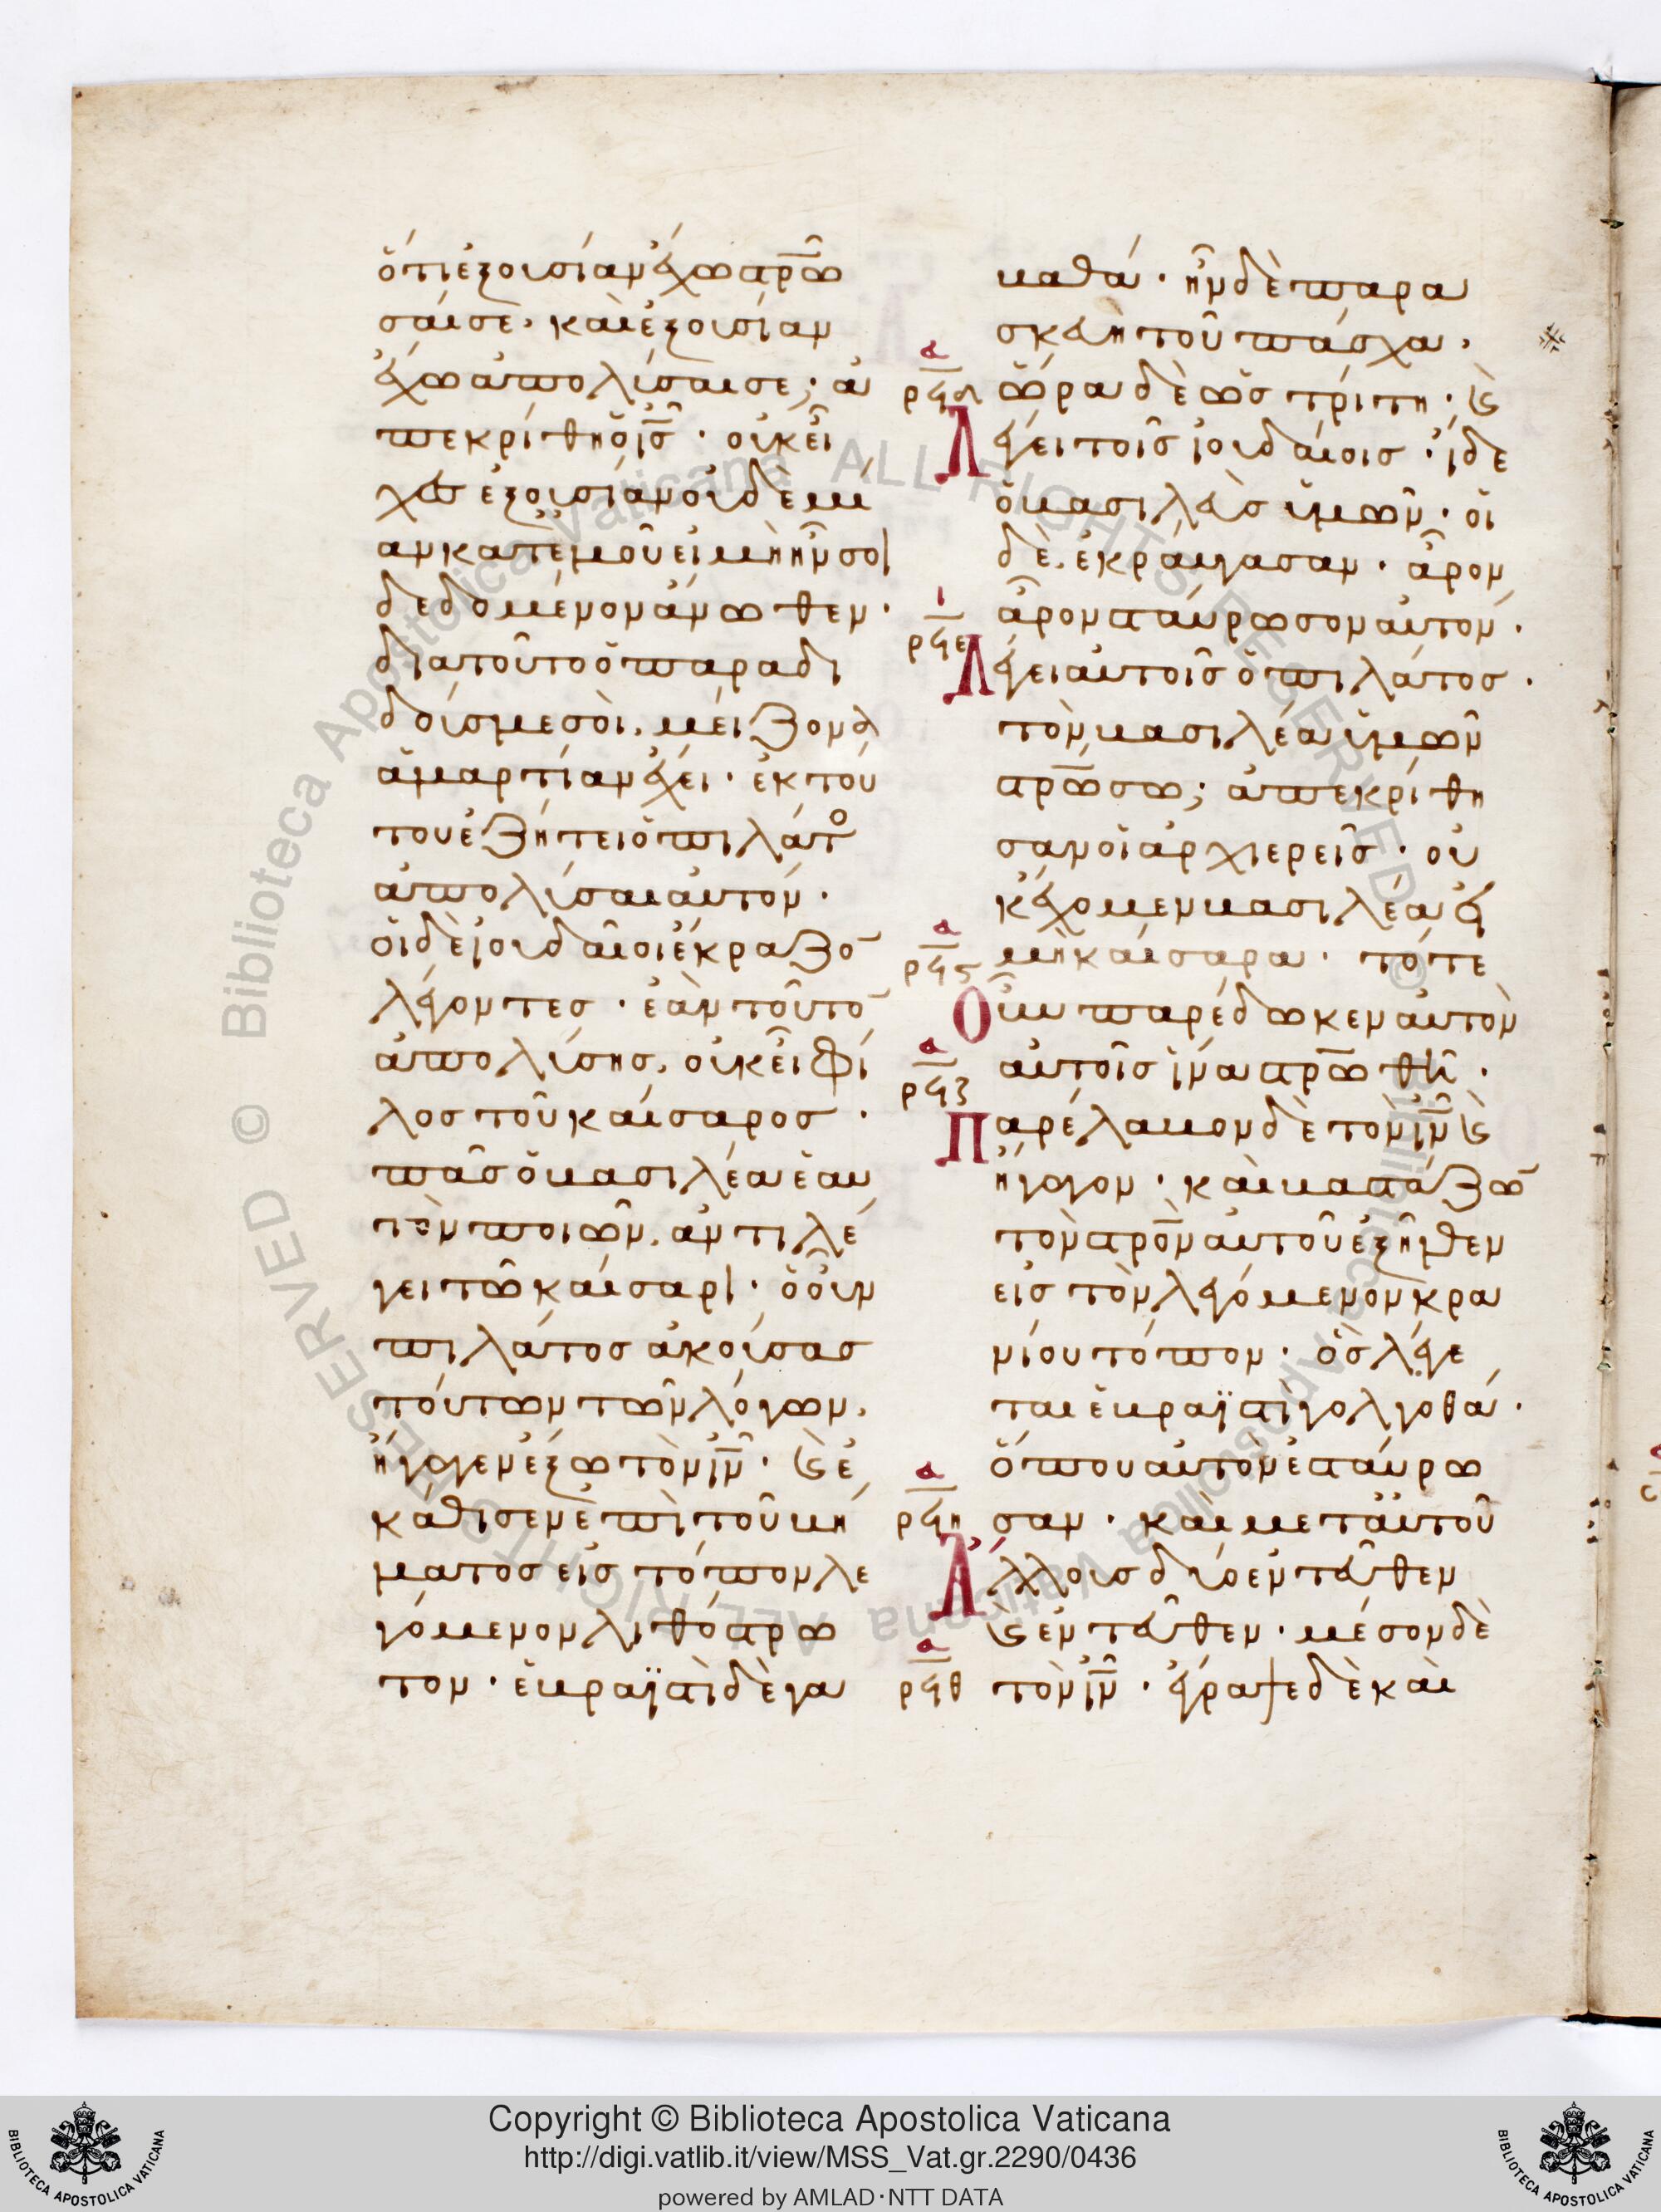 ὅτι ἐξουσίαν ἔχω στρω̅
σαί σε· καὶ ἐξουσίαν
ἔχω ἀπολῦσαί σε; ἀ
πεκρίθη ὁ ι̅ς̅· οὐκ εἶ
χες ἐξουσίαν οὐδεμι
αν κατ' ἐμοῦ εἰ μὴ ἦν σοι
δεδομένον ἄνωθεν·
διατοῦτο ὁ παραδι
δούς με σοὶ, μείζονα
ἁμαρτίαν ἔχει· ἐκ τού
του ἐζήτει ὁ πιλάτο
ἀπολῦσαι αὐτόν·
οἱ δὲ ἰουδαῖοι ἔκραζο̅
λέγοντες· ἐὰν τοῦτο̅
ἀπολύσης, οὐκ εἶ φί
λος τοῦ καίσαρος·
πᾶς ὁ βασιλέα ἑαυ
τὸν ποιῶν, ἀντιλέ
γει τῶ καίσαρι· ὁ οὖν
πιλάτος ἀκούσας
τούτων τῶν λόγων,
ἤγαγεν ἔξω τὸν ι̅ν̅· ϗ ἐ
κάθισεν ἐπὶ τοῦ βή
ματος εἰς τόπον λε
γόμενον λιθόστρω
τον· ἑβραϊστὶ δὲ γα
βαθά· ἦν δὲ παρα
σκευὴ τοῦ πάσχα·
ὥρα δὲ ὡς τρίτη· ϗ
α
ρϟδ
Λέγει τοῖς ἰουδαίοις· ἴδε
ὁ βασιλεὺς ὑμῶν· οἱ
δὲ ἐκραύγασαν· ἆρον
ἆρον σταύρωσον αὐτόν·
ι
ρϟε
Λέγει αὐτοῖς ὁ πιλάτος·
τὸν βασιλέα ὑμῶν
στρω̅σω; ἀπεκρίθη
σαν οἱ ἀρχιερεῖς· οὐ
κ ἔχομεν βασιλέα εἰ
μὴ καίσαρα· τότε
α
ρϟς
Οὖν παρέδωκεν αὐτὸν
αὐτοῖς ἵνα στρω̅θῆ·
α
ρϟζ
Παρέλαβον δὲ τὸν ι̅ν̅ ϗ
ἤγαγον· καὶ βαστάζω̅
τὸν στρο̅ν αὐτοῦ ἐξῆλθεν
εἰς τὸν λεγόμενον κρα
νίου τόπον· ὃς λέγε
ται ἑβραϊστὶ γολγοθά·
ὅπου αὐτὸν ἐσταύρω
σαν· καὶ μετ' αὐτοῦ
α
ρϟη
Ἄλλους δύο ἐντεῦθεν
ϗ ἐντεῦθεν· μέσον δὲ
τὸν ι̅ν̅· ἔγραψε δὲ καὶ
α
ρϟθ
Copyright © Biblioteca Apostolica Vaticana
http://digi.vatlib.it/view/MSS_Vat.gr.2290/0436
powered by AMLAD·NTT DATA
BIBLIOTECA APOSTOLICA VATICANA
BIBLIOTECA APOSTOLICA VATICANA
Biblioteca Apostolica Vaticana ALL RIGHTS RESERVED ©
Biblioteca Apostolica Vaticana ALL RIGHTS RESERVED ©